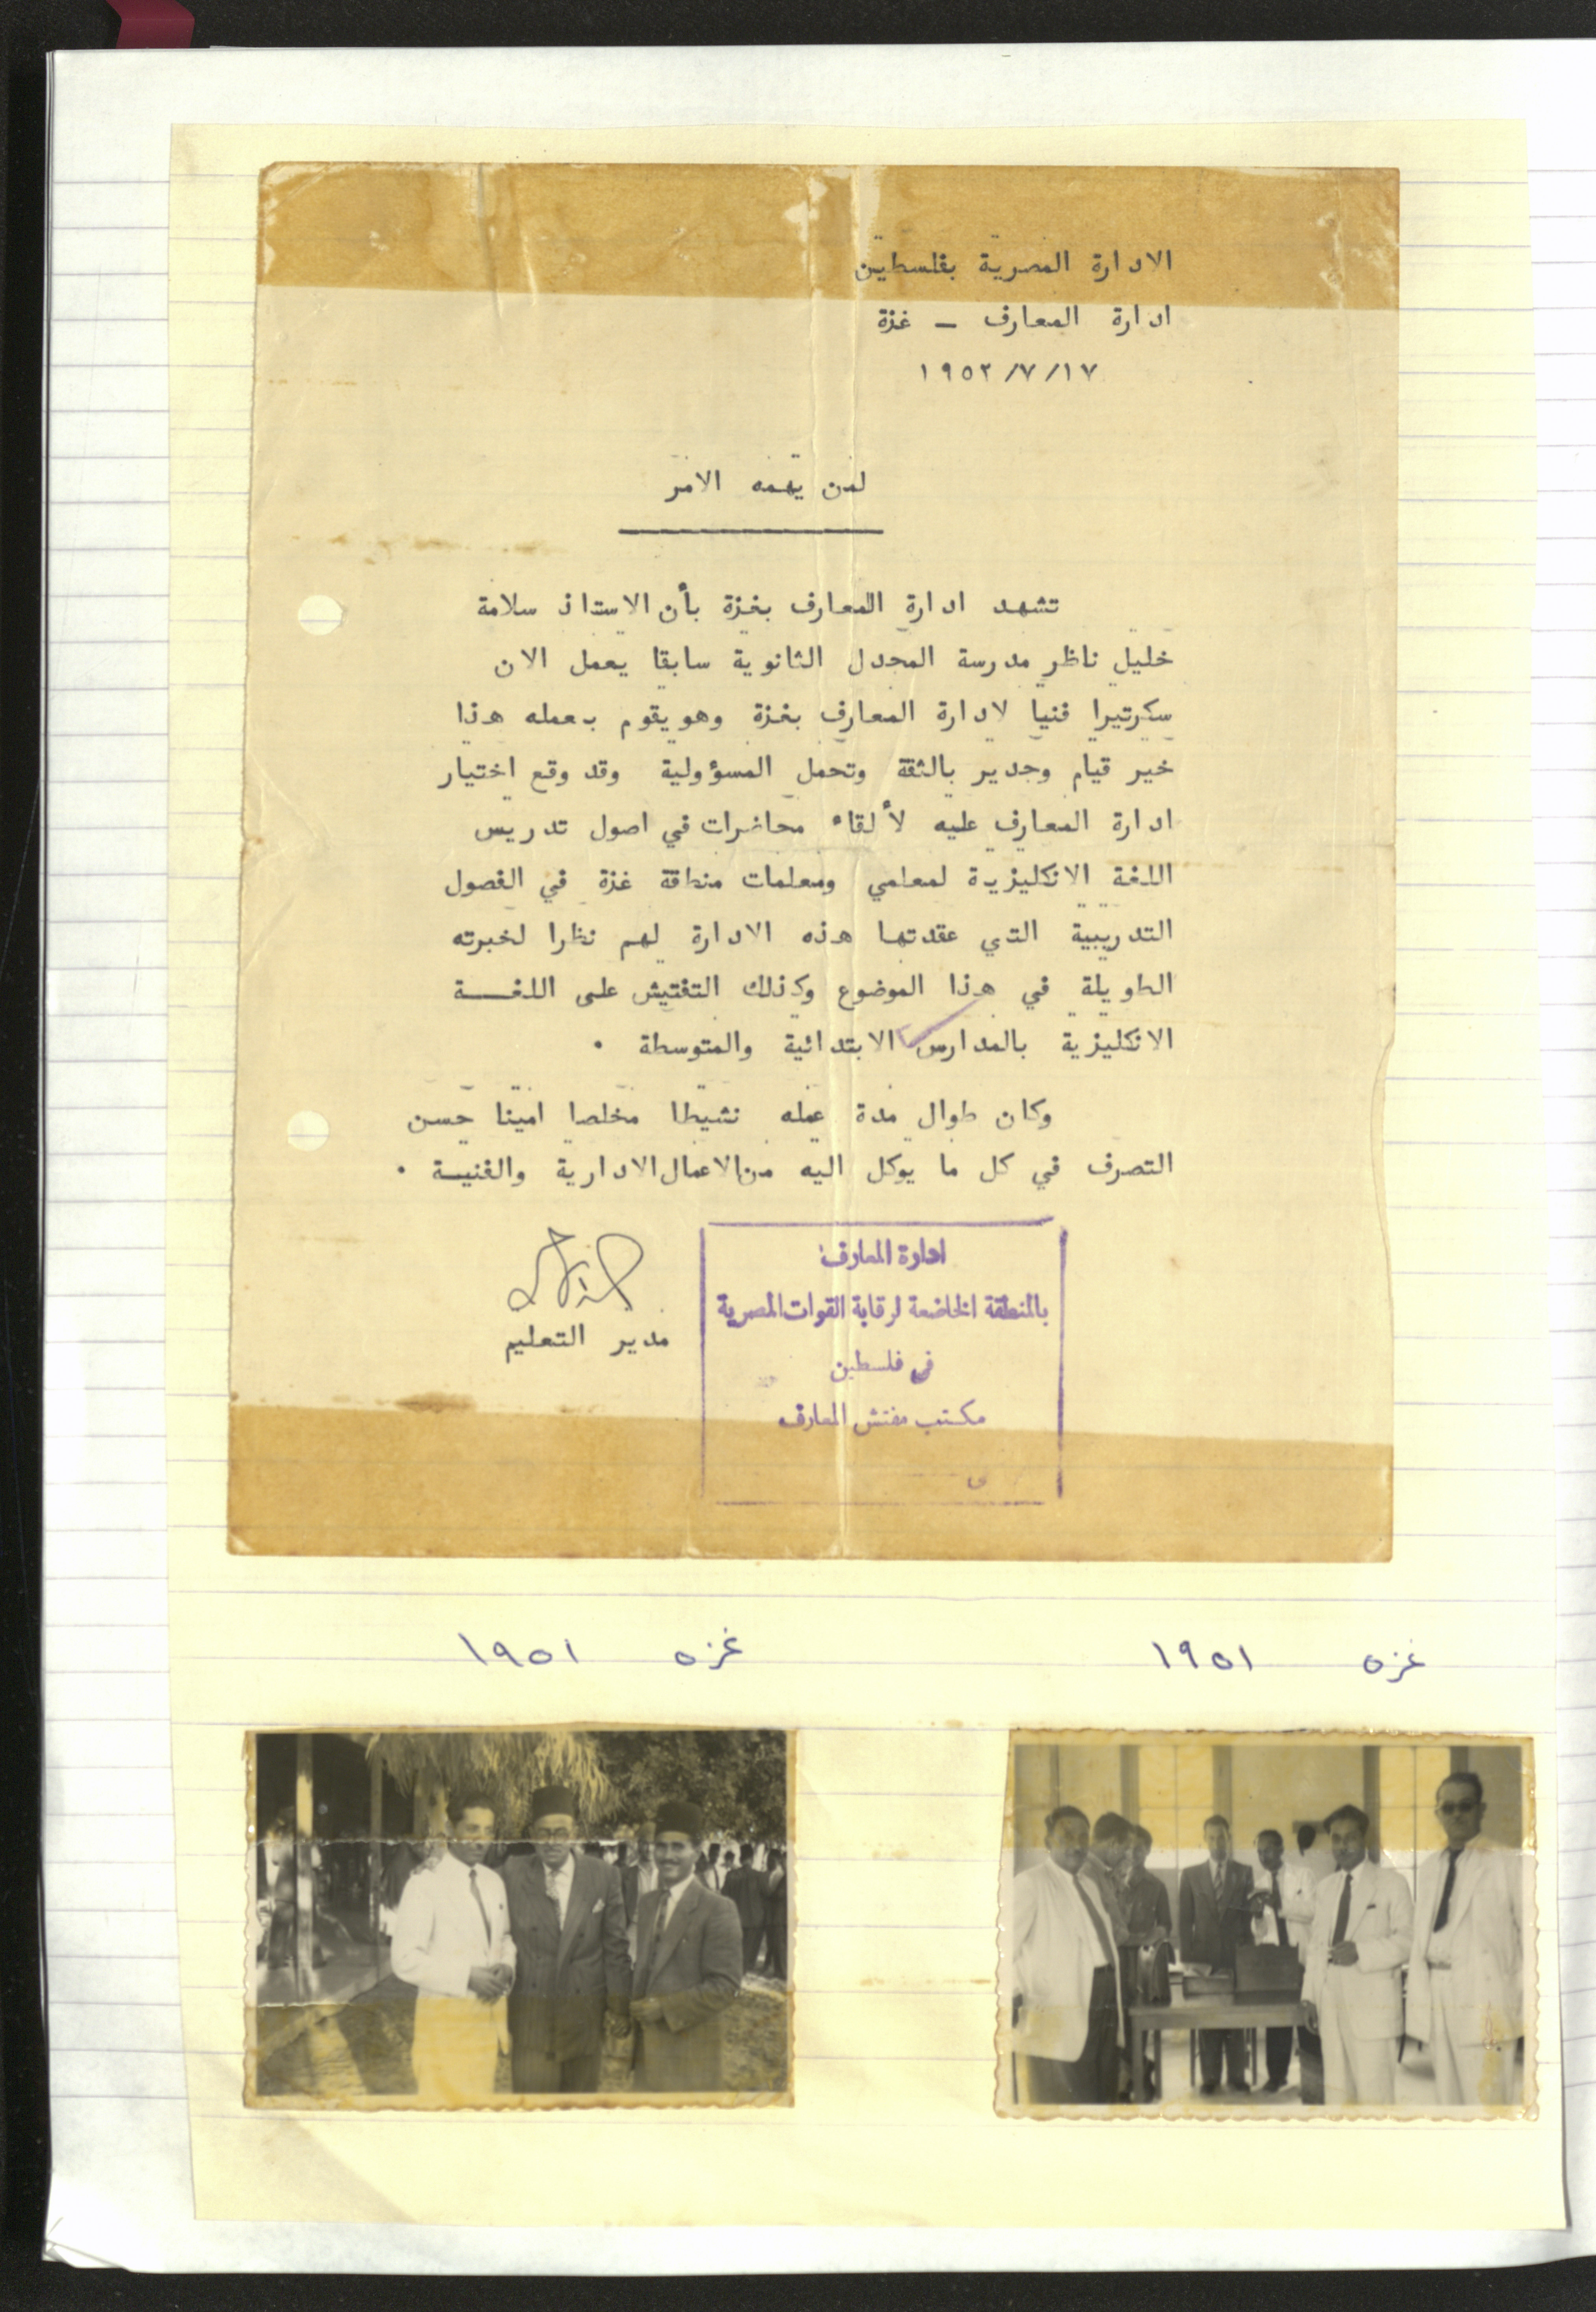 الادارة المصرية بفلسطين
ادارة المعارف – غزة
١٩٥٢/٧/١٧
لمن يهمه الامر
تشهد ادارة المعارف بغزة بأن الاستاذ سلامة
خليل ناظر مدرسة المجدل الثانوية سابقا يعمل الان
سكرتيرا فنيا لادارة المعارف بغزة وهو يقوم بعمله هذا
خير قيام وجدير بالثقة وتحمل المسؤولية وقد وقع اختيار
ادارة المعارف عليه لألقاء محاضرات في اصول تدريس
اللغة الانكليزية لمعلمي ومعلمات منطقة غزة في الفصول
التدريبية التي عقدتها هذه الادارة لهم نظرا لخبرته
الطويلة في هذا الموضوع وكذلك التفتيش على اللغــــة
الانكليزية بالمدارس الابتدائية والمتوسطة .
وكان طوال مدة عمله نشيطا مخلصا امينا حسن
التصرف في كل ما يوكل اليه من الاعمال الادارية والفنيـة .
مدير التعليم
ادارة المعارف
بالمنطقة الخاضعة لرقابة القوات المصرية
في فلسطين
مكتب مفتش المعارف
غزه ١٩٥١
غزه ١٩٥١